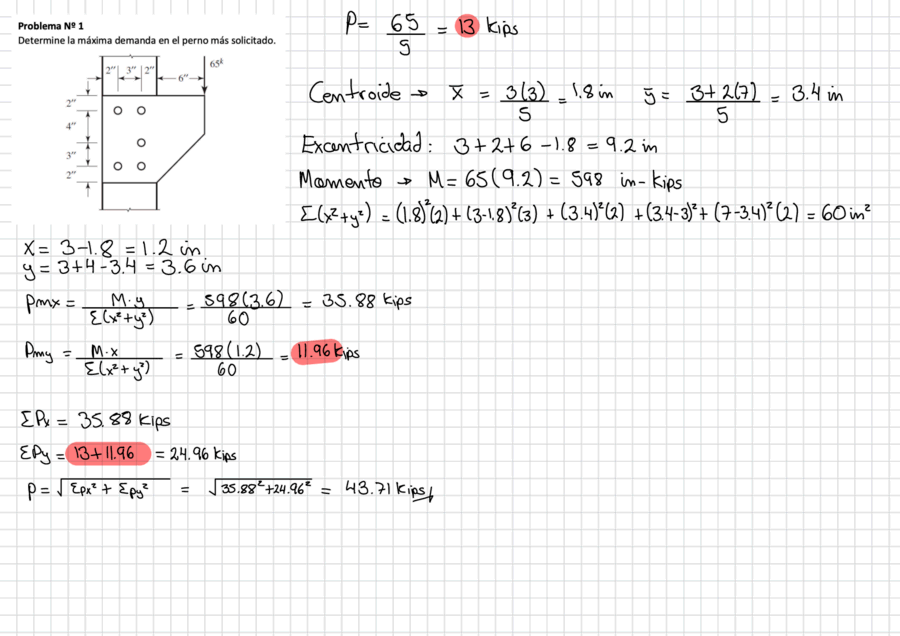 Problema Nº 1
Determine la máxima demanda en el perno más solicitado.
2" 3" 2" 6" 65ᵏ
2"
4"
3"
2"
P = 65/5 = 13 Kips
Centroide → x̄ = 3(3)/5 = 1.8 in ȳ = 3+2(7)/5 = 3.4 in
Excentricidad: 3+2+6-1.8 = 9.2 in
Momento → M = 65(9.2) = 598 in-Kips
Σ(x²+y²) = (1.8)²(2)+(3-1.8)²(3) + (3.4)²(2) + (3.4-3)² + (7-3.4)²(2) = 60 in²
x = 3-1.8 = 1.2 in
y = 3+4-3.4 = 3.6 in
Pmx = M·y/Σ(x²+y²) = 598(3.6)/60 = 35.88 Kips
Pmy = M·x/Σ(x²+y²) = 598(1.2)/60 = 11.96 Kips
ΣPx = 35.88 Kips
ΣPy = 13+11.96 = 24.96 Kips
P = √ΣPx² + ΣPy² = √35.88²+24.96² = 43.71 Kips